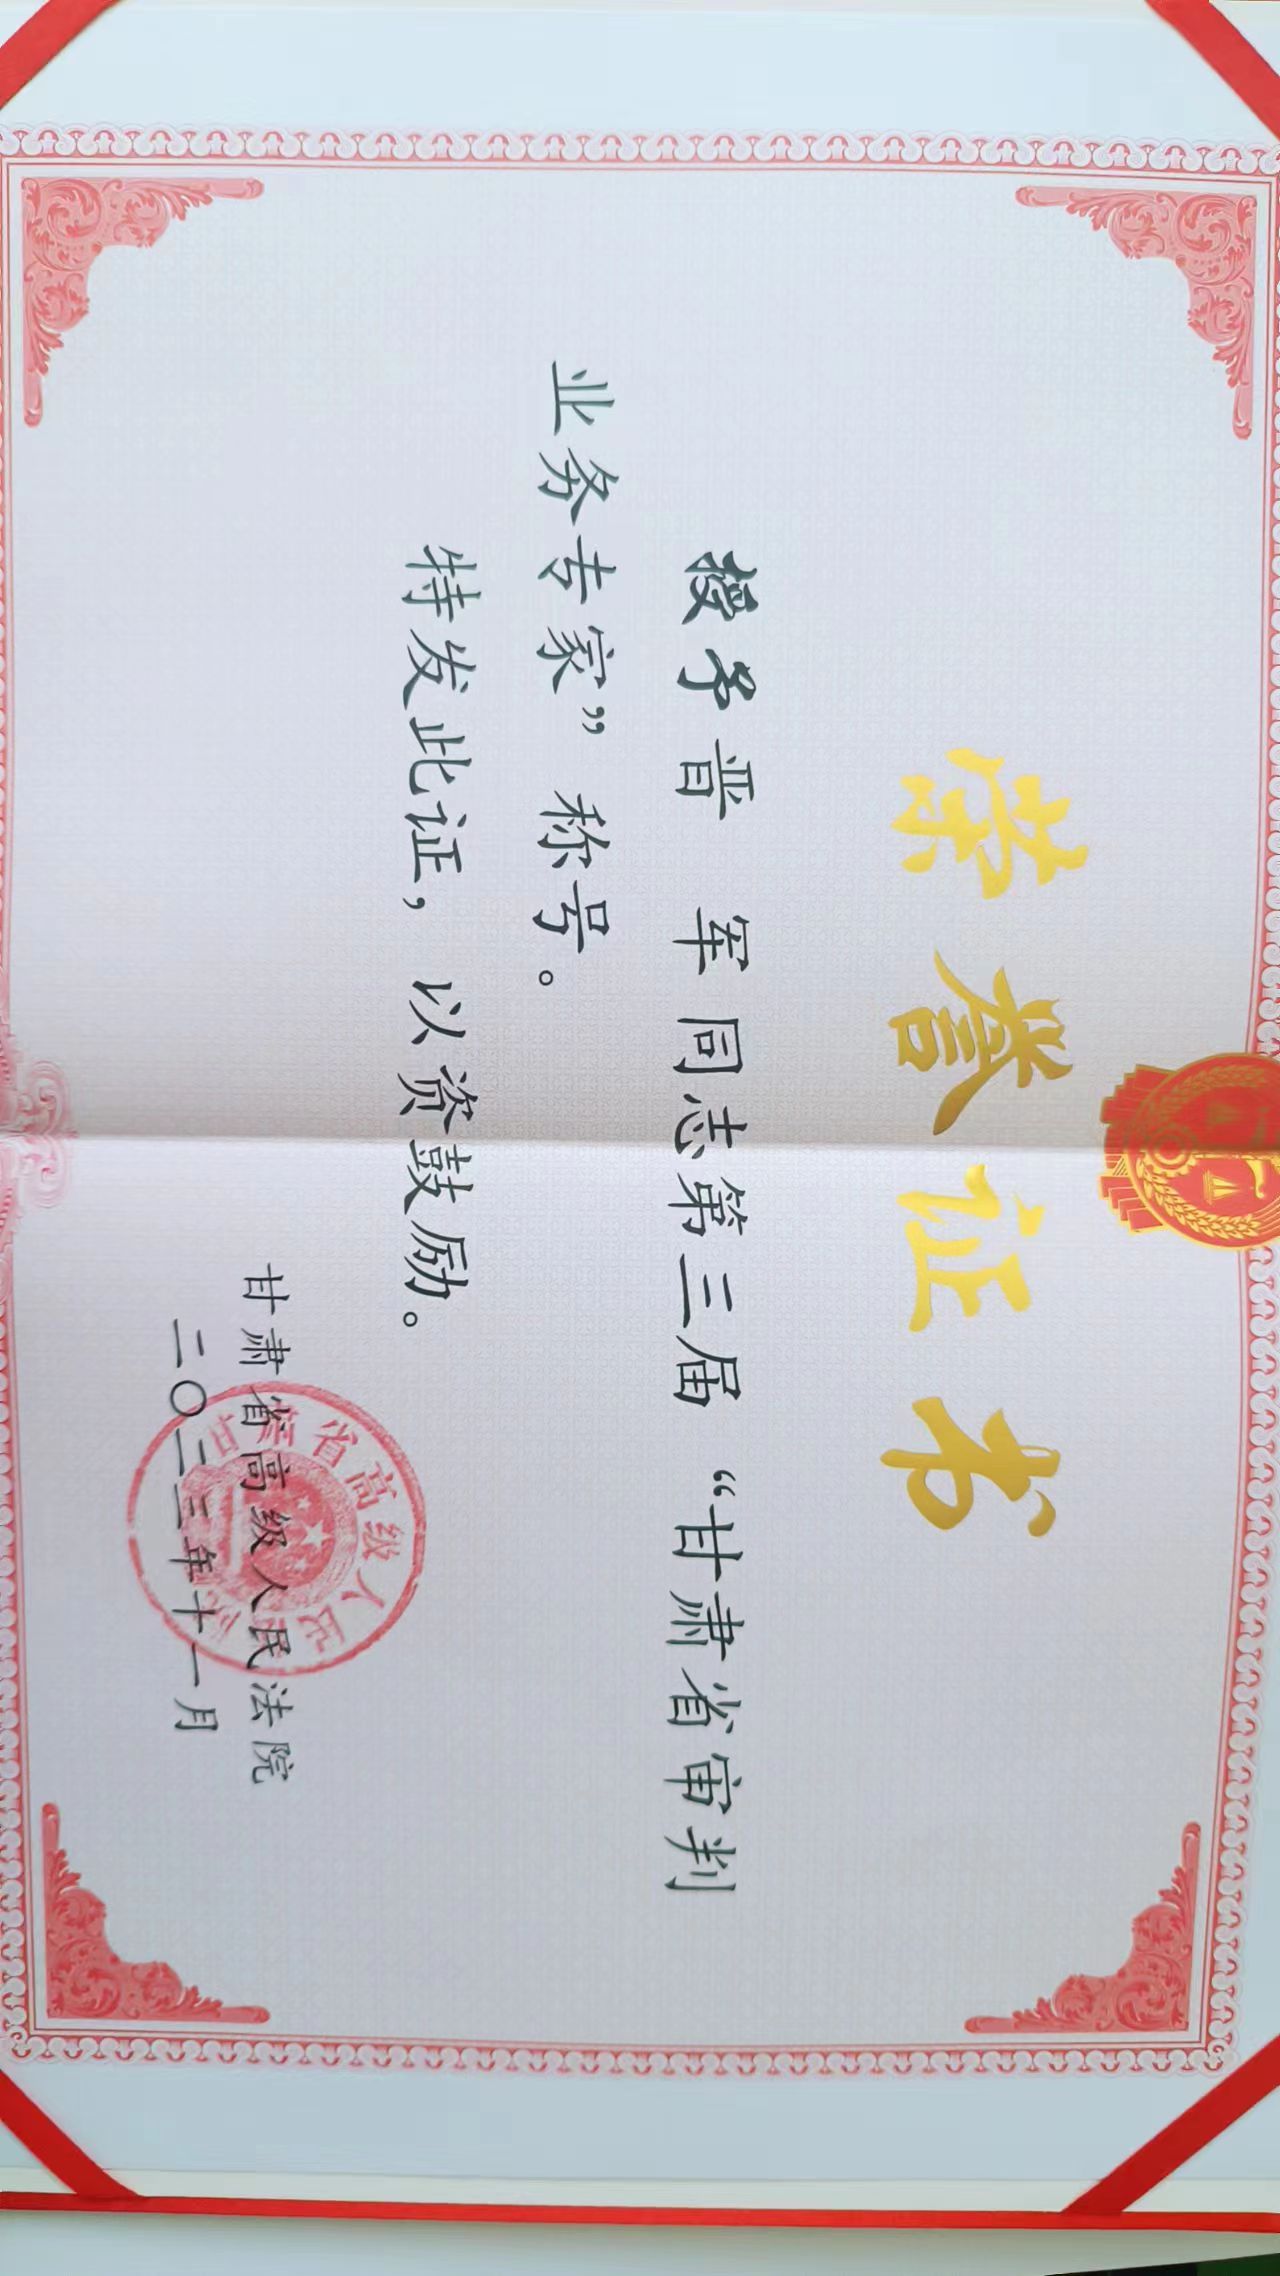 荣誉证书
授予晋 军同志第三届“甘肃省审判
业务专家”称号。
特发此证，以资鼓励。
甘肃省高级人民法院
二〇二三年十一月
甘肃省高级人民法院